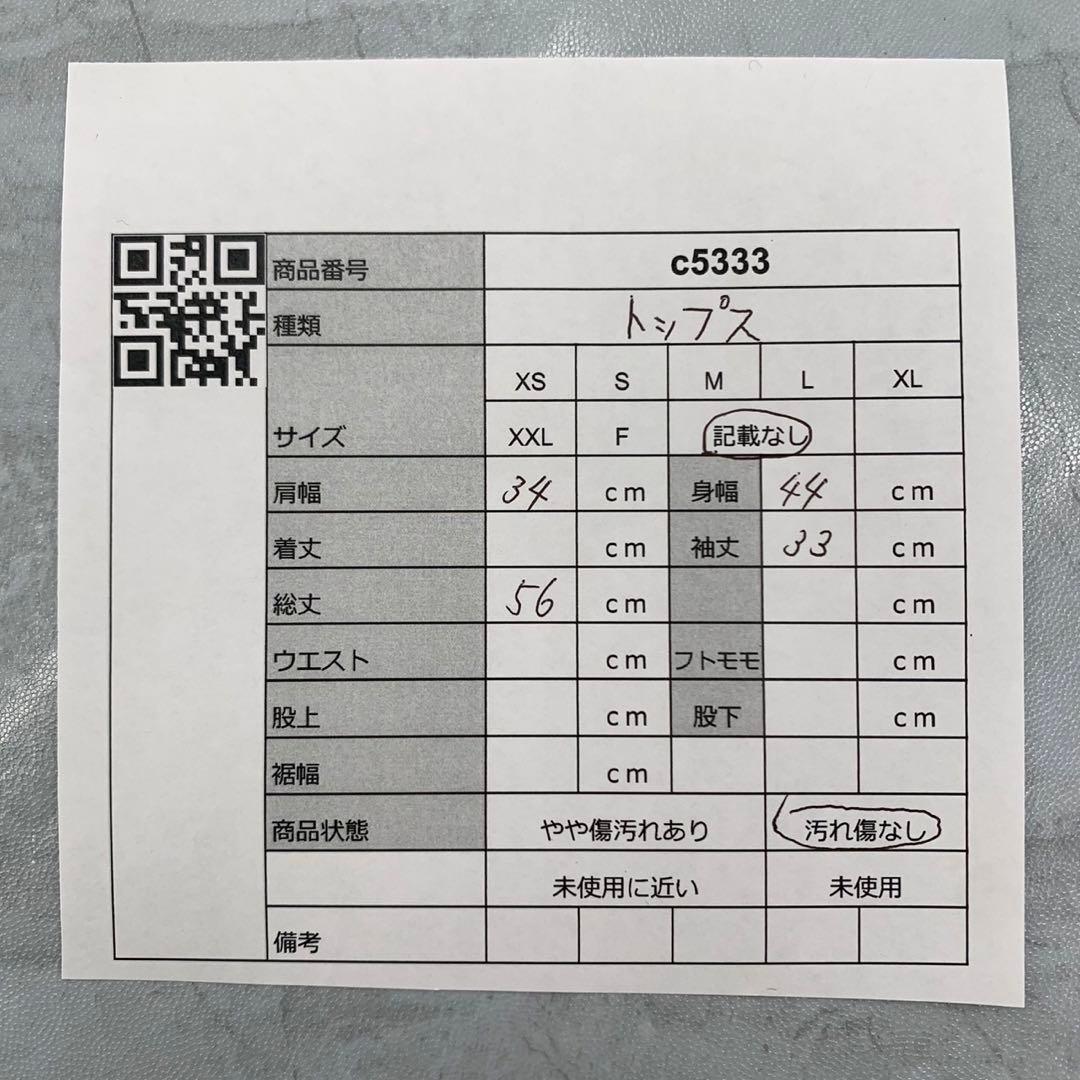 商品番号 c5333
種類 トップス
XS S M L XL
サイズ XXL F 記載なし
肩幅 34 cm 身幅 44 cm
着丈 cm 袖丈 33 cm
総丈 56 cm cm
ウエスト cm フトモモ cm
股上 cm 股下 cm
裾幅 cm
商品状態 やや傷汚れあり 汚れ傷なし
未使用に近い 未使用
備考